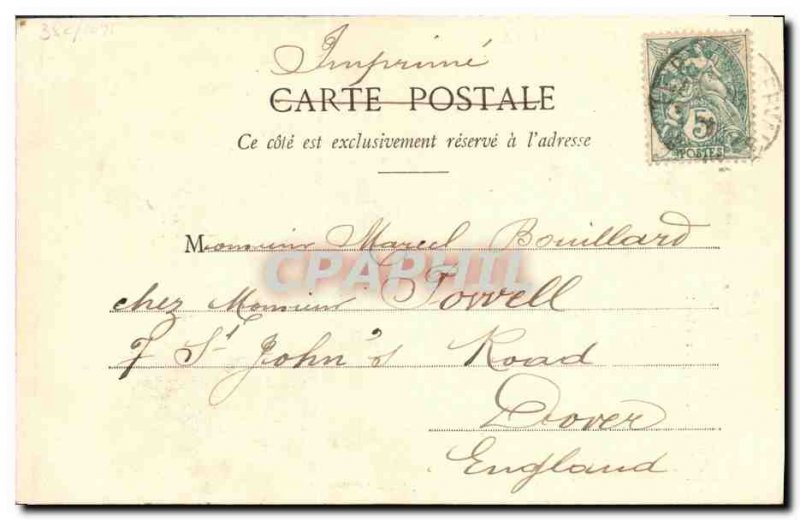 Imprimé
CARTE POSTALE
Ce côté est exclusivement réservé à l'adresse
5
POSTES
Monsieur Marcel Bouillard
CPAPHIL
chez Monsieur Fowell
7 St John's Road
Dover
England